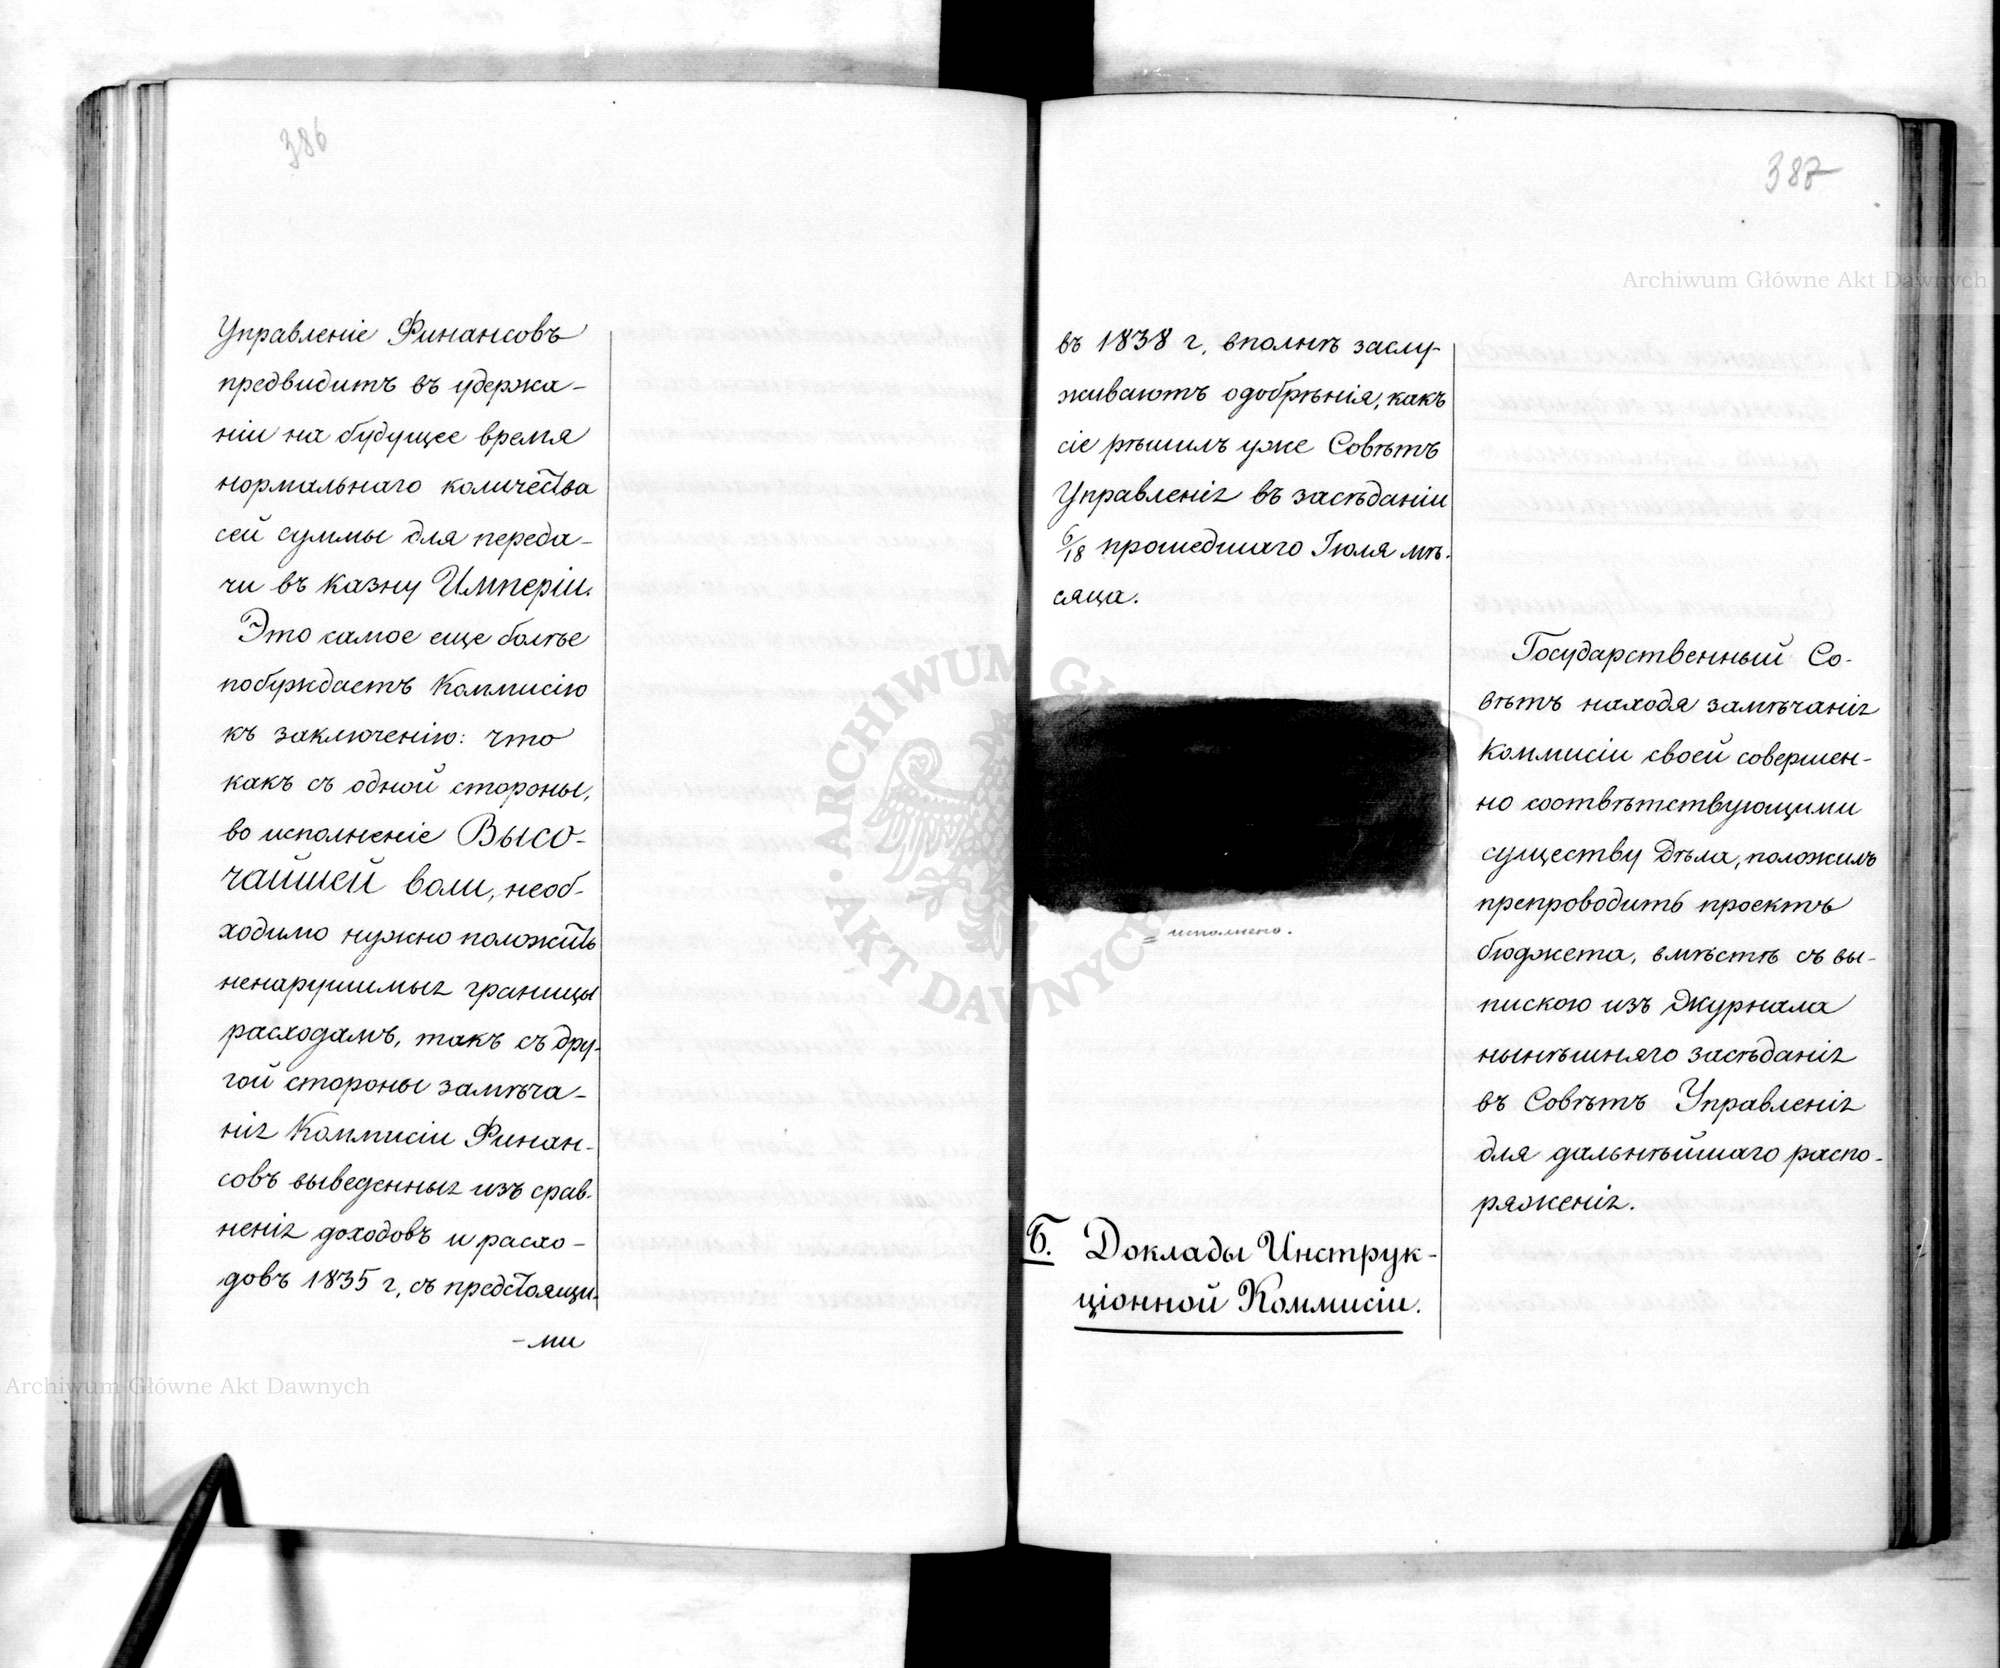 386
Управленіе Финансовъ
предвидитъ въ удержа-
ніи на будущее время
нормальнаго количества
сей суммы для переда-
чи въ казну Имперіи.
Это самое еще болѣе
побуждаетъ Коммисію
къ заключенію: что
какъ съ одной стороны,
во исполненіе Высо-
чайшей воли, необ-
ходимо нужно положить
ненарушимыя границы
расходамъ, такъ съ дру-
гой стороны замѣча-
нія Коммисіи Финан-
совъ выведенныя изъ срав-
ненія доходовъ и расхо-
довъ 1835 г, съ предстоящи-
-ми
387
въ 1838 г, вполнѣ заслу-
живаютъ одобрѣнія, какъ
сіе рѣшилъ уже Совѣтъ
Управленія въ засѣданіи
6/18 прошедшаго Іюля мѣ-
сяца.
= исполнено.
Б. Доклады Инструк-
ціонной Коммисіи.
Государственный Со-
вѣтъ находя замѣчанія
Коммисіи своей совершен-
но соотвѣтствующими
существу дѣла, положилъ
препроводить проектъ
бюджета, вмѣстѣ съ вы-
пискою изъ Журнала
нынѣшняго засѣданія
въ Совѣтъ Управленія
для дальнѣйшаго распо-
ряженія.
Archiwum Główne Akt Dawnych
Archiwum Główne Akt Dawnych
ARCHIWUM GŁ
AKT DAWNYCH